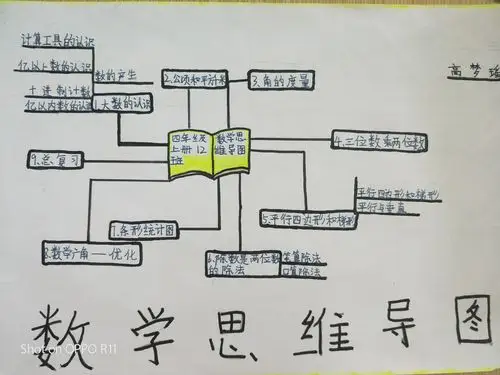 计算工具的认识
亿以上数的认识
数的产生
十进制计数
亿以内数的认识
1.大数的认识
2.公顷和平方千米
3.角的度量
高梦瑶
四年级
上册12
班
数学思
维导图
4.三位数乘两位数
9.总复习
平行四边形和梯形
平行与垂直
5.平行四边形和梯形
7.条形统计图
8.数学广角——优化
6.除数是两位数
的除法
笔算除法
口算除法
数学思维导图
Shot on OPPO R11